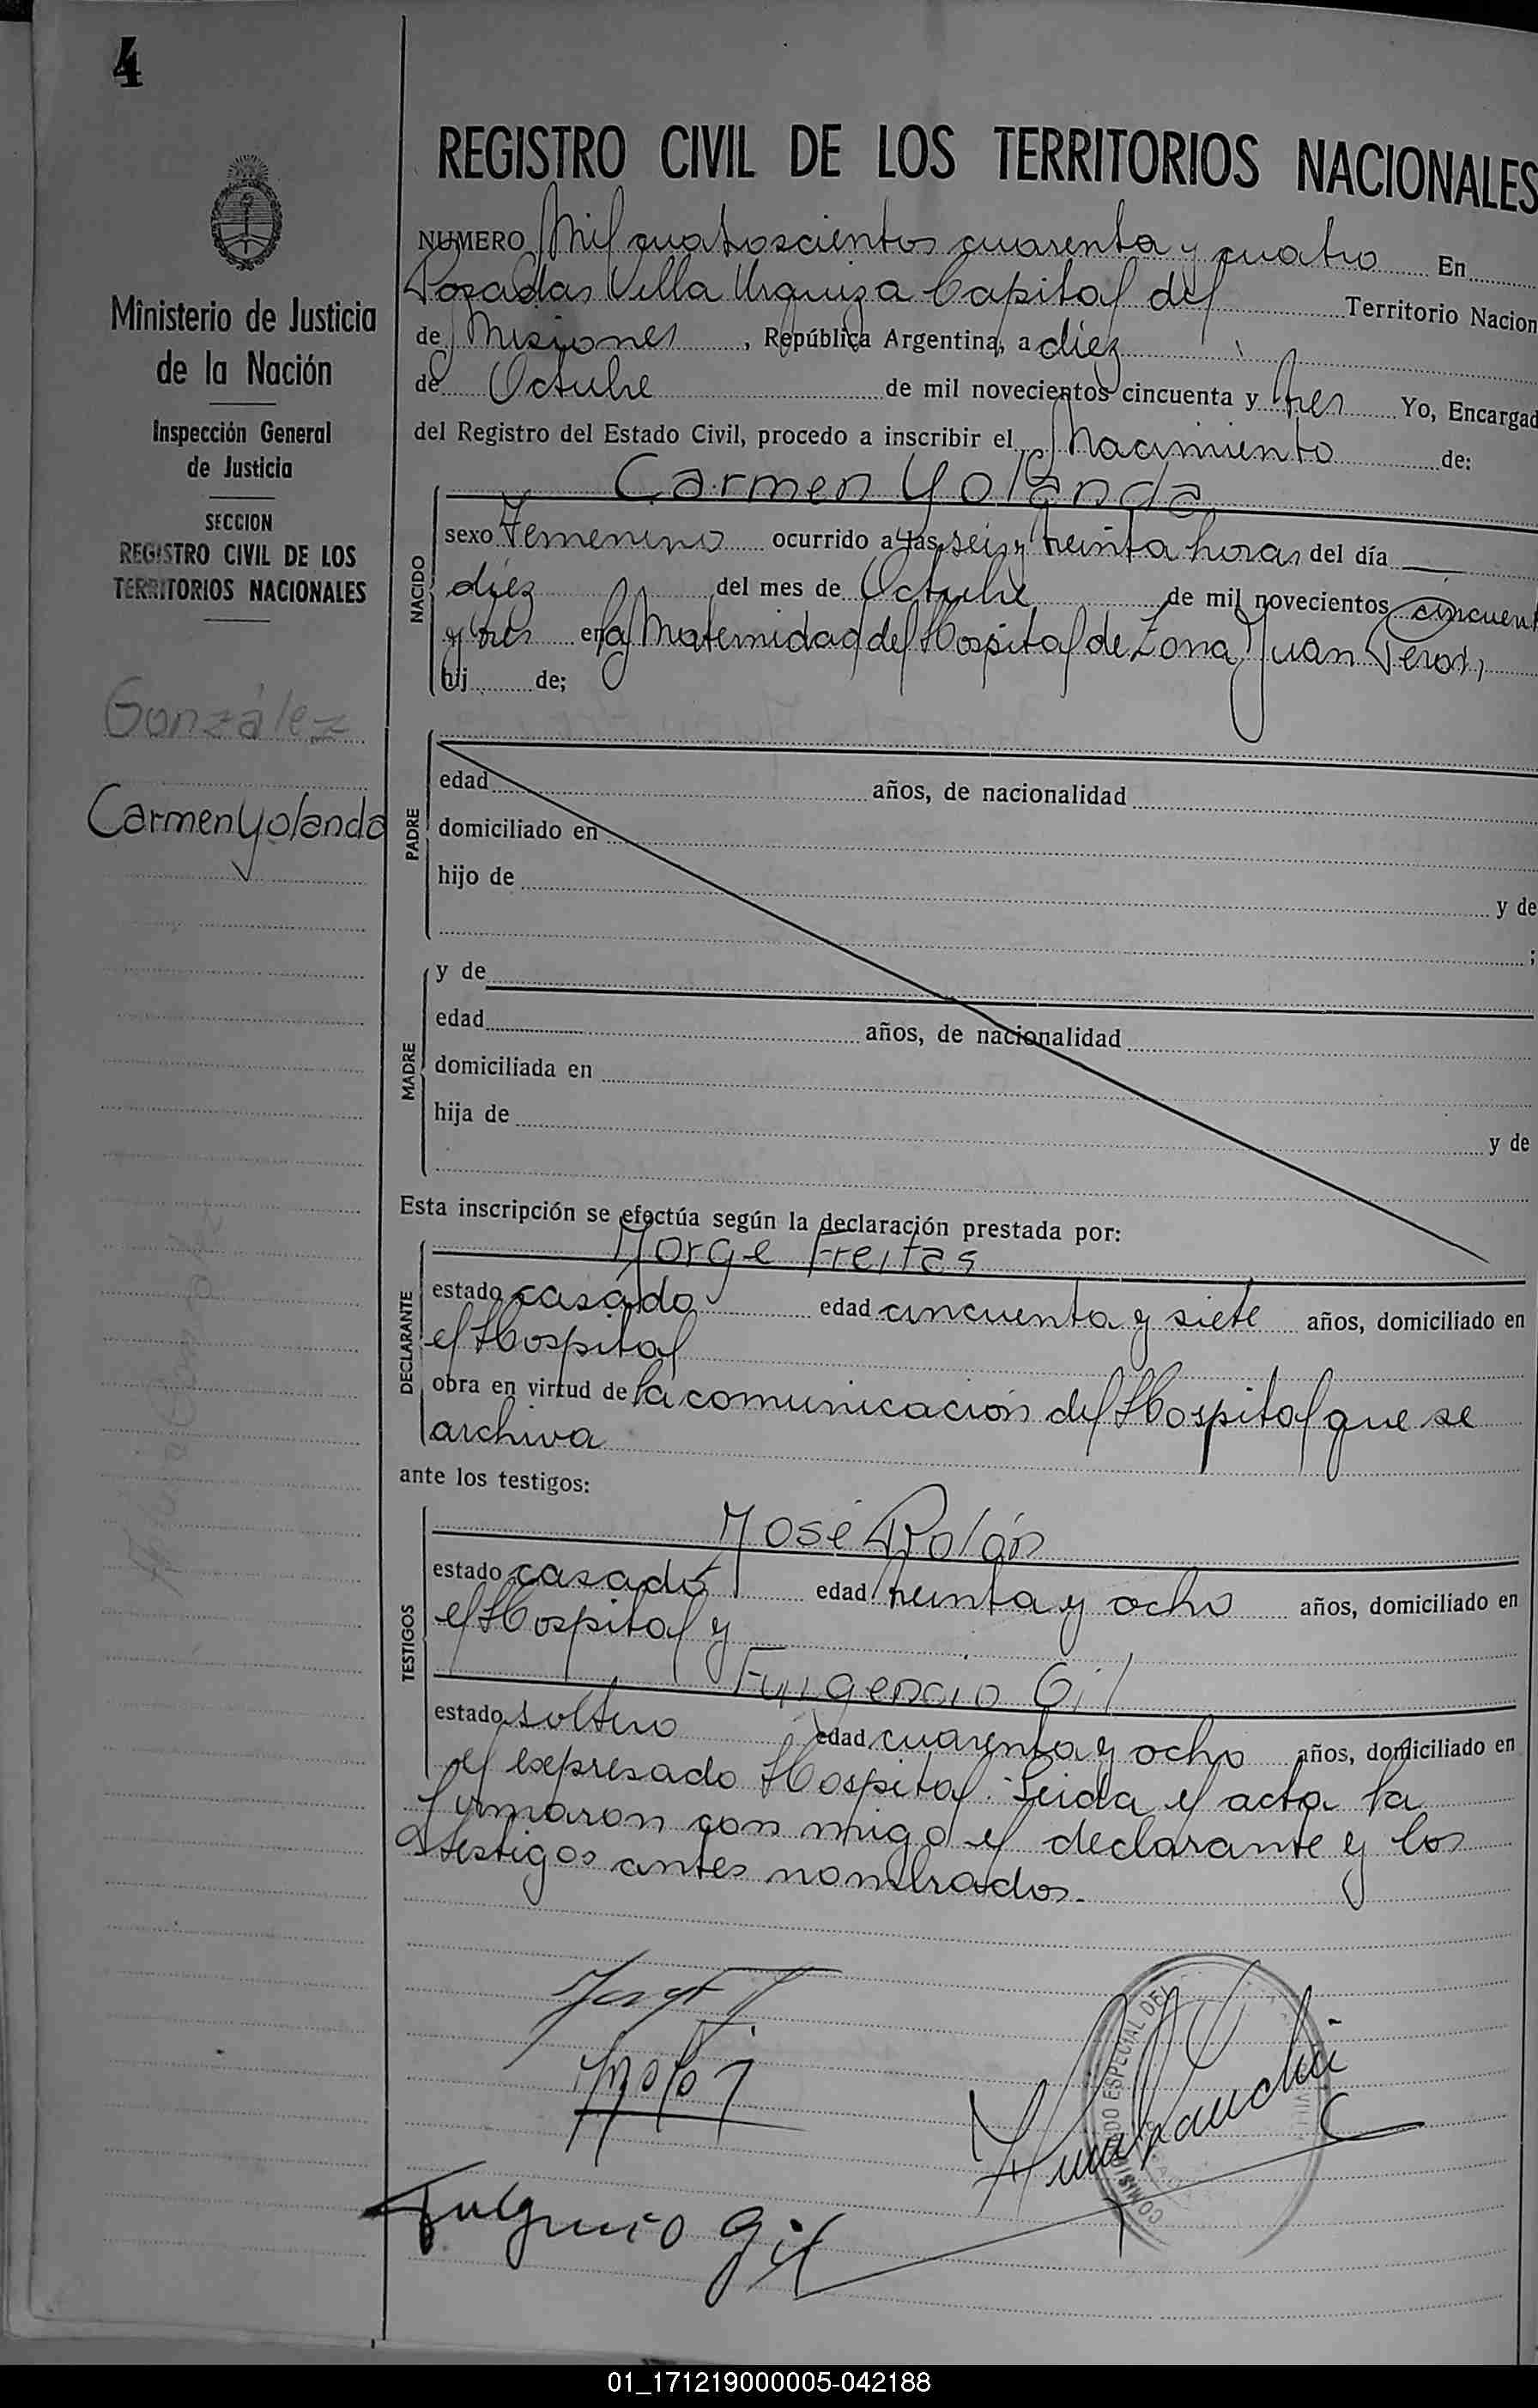 4
Ministerio de Justicia
de la Nación
Inspección General
de Justicia
SECCION
REGISTRO CIVIL DE LOS
TERRITORIOS NACIONALES
González
Carmen Yolanda
REGISTRO CIVIL DE LOS TERRITORIOS NACIONALES
NUMERO Mil cuatroscientos cuarenta y cuatro En
Posadas Villa Urquiza Capital del Territorio Nacion
de Misiones, República Argentina, a diez
de Octubre de mil novecientos cincuenta y tres Yo, Encargad
del Registro del Estado Civil, procedo a inscribir el Nacimiento de:
Carmen Yolanda
NACIDO
sexo Femenino ocurrido a las seis y treinta horas del día
diez del mes de Octubre de mil novecientos cincuent
y tres en la Maternidad del Hospital de Zona Juan Peron,
hij de;
PADRE
edad años, de nacionalidad
domiciliado en
hijo de y de
;
MADRE
y de
edad años, de nacionalidad
domiciliada en
hija de y de
Esta inscripción se efectúa según la declaración prestada por:
Jorge Freitas
DECLARANTE
estado casado edad cincuenta y siete años, domiciliado en
el Hospital
obra en virtud de la comunicación del Hospital que se
archiva
ante los testigos:
José Rolón
TESTIGOS
estado casado edad treinta y ocho años, domiciliado en
el Hospital y
Fulgencio Gil
estado soltero edad cuarenta y ocho años, domiciliado en
el expresado Hospital. Leida el acta la
firmaron con migo el declarante y los
testigos antes nombrados.
Fulgencio Gil
COMISIONADO ESPECIAL DEL
01_171219000005-042188